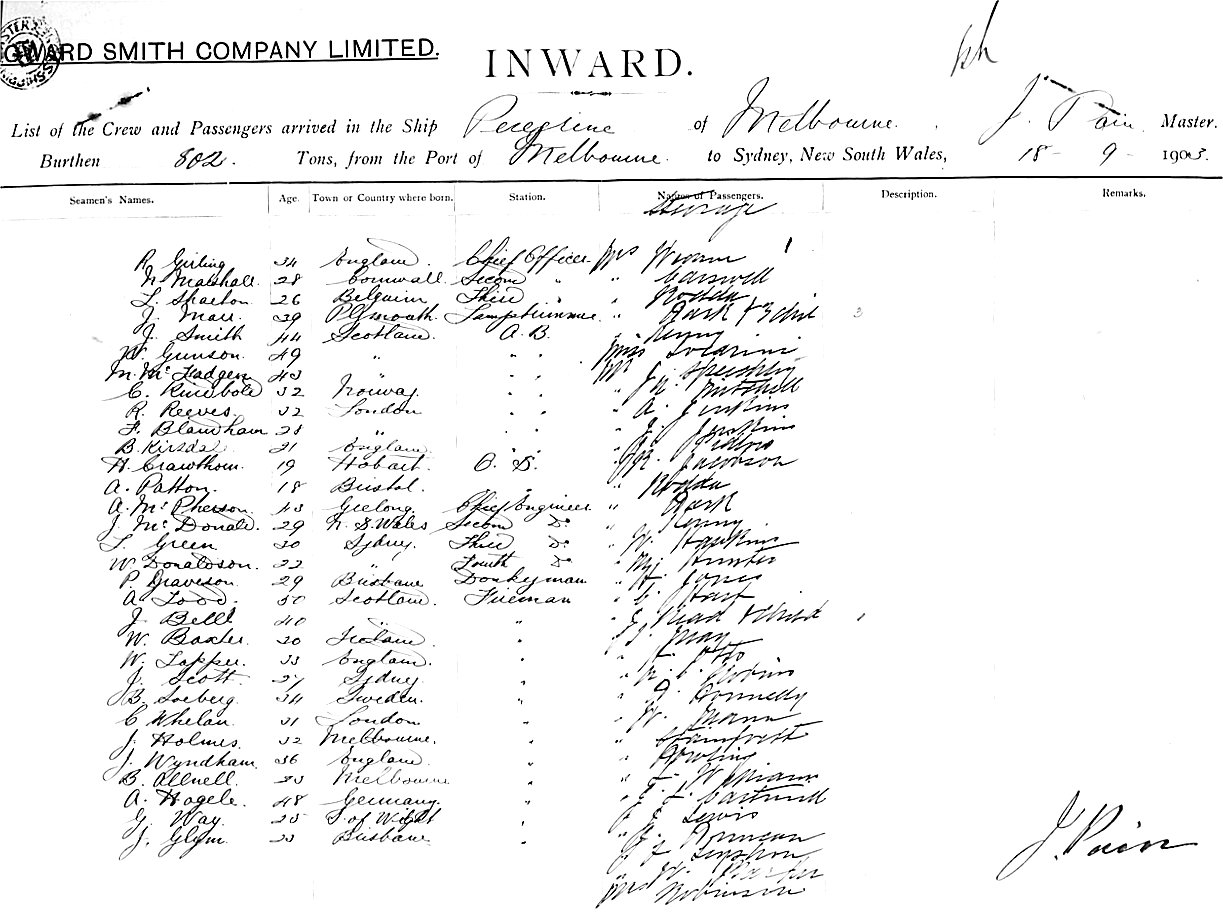 HOWARD SMITH COMPANY LIMITED.
INWARD.
List of the Crew and Passengers arrived in the Ship Peregrine of Melbourne. J. Pain Master.
Burthen 802. Tons, from the Port of Melbourne to Sydney, New South Wales, 18 - 9 - 1903.
Seamen's Names. Age. Town or Country where born. Station. Names of Passengers. Description. Remarks.
Steerage
R. Girling 34 England Chief Officer Mrs
N. Marshall 28 Cornwall Second " " Carswell
L. 26 Belgium Third " " Nodda
J. Marr 39 Plymouth Lamptrimmer " Park & Child
J. Smith 44 Scotland A.B. " Kenny
W. Gunson 49 " " " Miss
M. McFadgen 43 " " Mr J.
C. 32 Norway " " " N. Mitchell
R. Reeves. 32 London " " " A. Jenkins
F. 28 " " " " J. Jenkins
B. 21 England " "
H. Crawthorn. 19 Hobart. O.S. " Jacobson
A. Patton. 18 Bristol. " Nodda
A. McPherson. 43 Geelong. Chief Engineer " Park
J. McDonald. 29 N.S Wales Second Do " Kenny
L. Green 30 Sydney. Third Do " W. Hopkins
W. Donaldson. 22 " Fourth Do " Hunter
P. Graveson. 29 Brisbane Donkeyman " H. Jones
A. Todd. 50 Scotland. Fireman " Hart
J. Bell 40 " " " J. Read & Child 1
W. Baxter. 30 Ireland. " " J. May
W. Tapper. 33 England. " " Otto
J. Scott. 27 Sydney. " "
B. Soeberg. 34 Sweden. " " Kennedy
C. Whelan. 31 London " " W. Mann
J. Holmes. 32 Melbourne. " "
J. Wyndham. 36 England. " "
B. 23 Melbourne " " Williams
A. Hagele. 48 Germany. "
G. Way. 25 I. of Wight " " Lewis
J. Glynn. 23 Brisbane " " Duncan
" W. Parker
Mrs Robinson
J. Pain